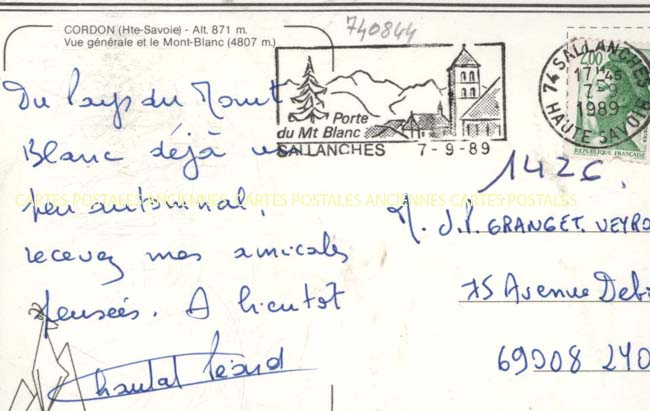 740844
CORDON (Hte-Savoie) - Alt. 871 m.
Vue générale et le Mont-Blanc (4807 m.)
Du Pays du Mont
Blanc déjà un
peu automnal,
recevez mes amicales
pensées. A bientôt
Chantal
Porte
du Mt Blanc
SALLANCHES 7-9-89
74 SALLANCHES
17H45
7-9
1989
HAUTE SAVOIE
2,00
REPUBLIQUE FRANÇAISE
1426
CARTES POSTALES ANCIENNES CARTES POSTALES ANCIENNES CARTES POSTALES
M. J.P. GRANGET. VEYRO
75 Avenue Deb
69008 LYO